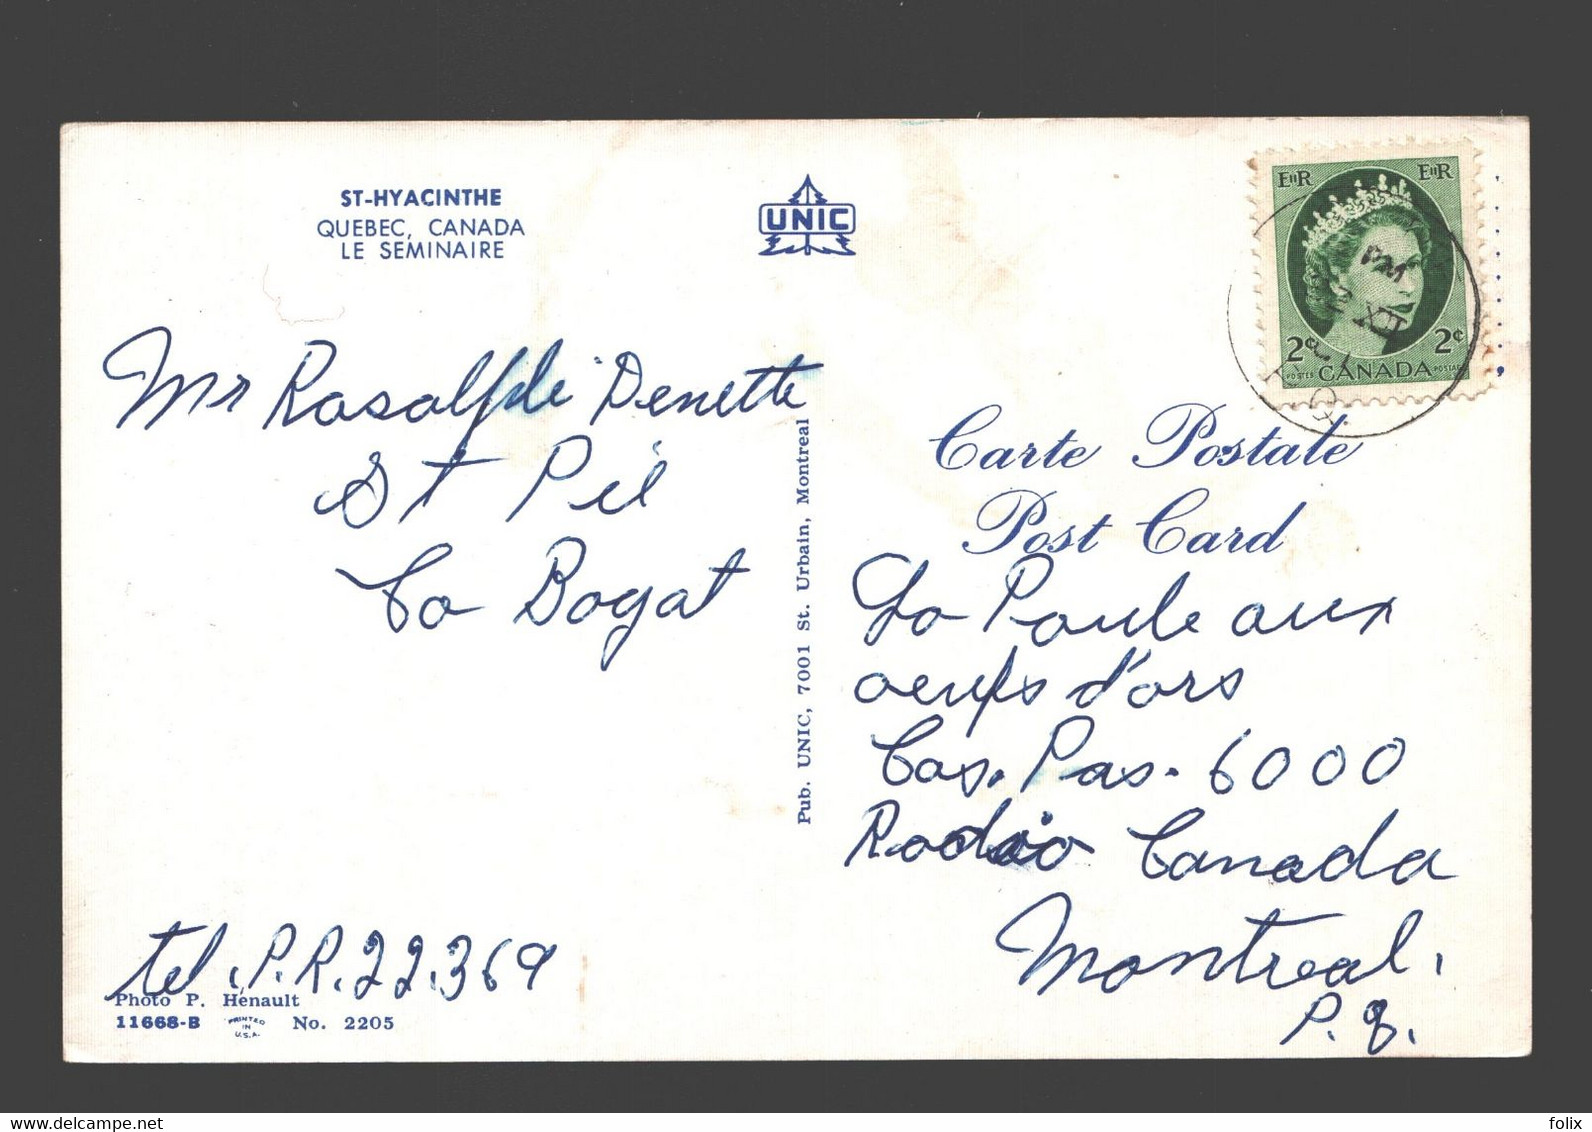 ST-HYACINTHE
QUEBEC, CANADA
LE SEMINAIRE
UNIC
EIIR EIIR
PM
XII
2¢ 2¢
POSTES CANADA POSTAGE
Mr Rasalfde Denette
St Pie
Co Bagat
tel. P.R. 22.369
Photo P. Hénault
11668-B PRINTED IN U.S.A. No. 2205
Pub. UNIC, 7001 St. Urbain, Montreal
Carte Postale
Post Card
La Poule aux
oeufs d'ors
Cas. Pas. 6000
Radio Canada
Montreal.
P.Q.
folix
www.delcampe.net